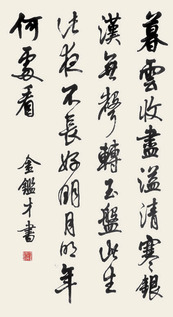 暮雲收盡溢清寒銀
漢無聲轉玉盤此生
此夜不長好明月明年
何處看
金鑑才書